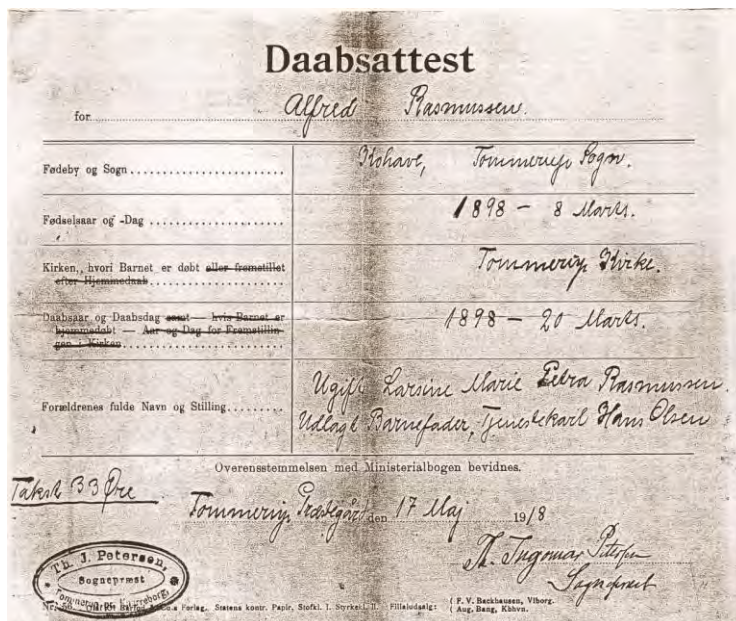 Daabsattest
for Alfred Rasmussen.
Fødeby og Sogn Kohave, Tommerup Sogn.
Fødselsaar og -Dag 1898 - 8 Marts.
Kirken, hvori Barnet er døbt eller fremstillet Tommerup Kirke.
efter Hjemmedaab
Daabsaar og Daabsdag samt — hvis Barnet er 1898 - 20 Marts.
hjemmedøbt — Aar og Dag for Fremstillin-
gen i Kirken
Forældrenes fulde Navn og Stilling Ugift Larsine Marie Petra Rasmussen.
Udlagt Barnefader, Tjenestekarl Hans Olsen
Overensstemmelsen med Ministerialbogen bevidnes.
Takst 33 Øre
Tommerup Præstegård den 17 Maj 1918
Th. Ingomar Petersen
Sognepræst
Th. J. Petersen,
Sognepræst
Tommerup og
Forlag. Statens kontr. Papir, Stofkl. I. Styrkekl. II. Filialudsalg: F. V. Backhausen, Viborg.
Aug. Bang, Kbhvn.